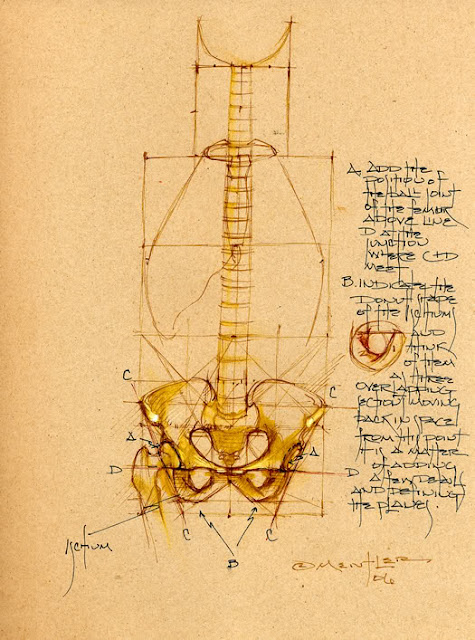 A. ADD THE
POSITION OF
THE BALL JOINT
OF THE FEMUR
ABOVE LINE
D AT THE
JUNCTION
WHERE C+D
MEET
B. INDICATE THE
DONUT SHAPE
OF THE ISCHIUMS
AND
THINK
OF THEM
AS THREE
OVERLAPPING
SECTIONS MOVING
BACK IN SPACE
FROM THIS POINT
IT IS A MATTER
OF ADDING
A FEW DETAILS
AND DEFINING
THE PLANES.
C
C
A
A
D
D
C
C
B
ISCHIUM
© MENTLER
06